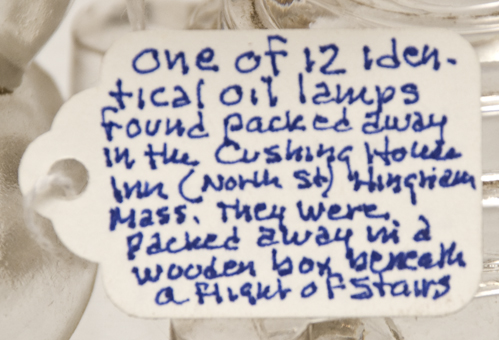 One of 12 iden-
tical oil lamps
found packed away
in the Cushing House
Inn (North St) Hingham
Mass. They were
packed away in a
wooden box beneath
a flight of stairs